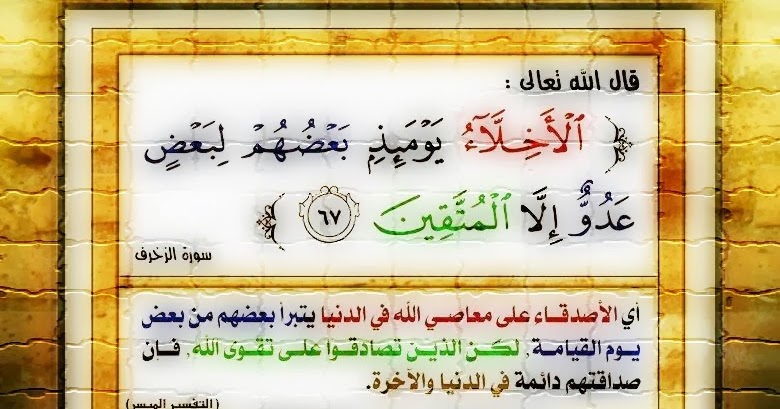 قال الله تعالى :
﴿ ٱلْأَخِلَّآءُ يَوْمَئِذٍۭ بَعْضُهُمْ لِبَعْضٍ
عَدُوٌّ إِلَّا ٱلْمُتَّقِينَ ٦٧ ﴾
سورة الزخرف
أي الأصدقاء على معاصي الله في الدنيا يتبرأ بعضهم من بعض
يوم القيامة , لكن الذين تصادقوا على تقوى الله , فإن
صداقتهم دائمة في الدنيا والآخرة.
(التفسير الميسر)